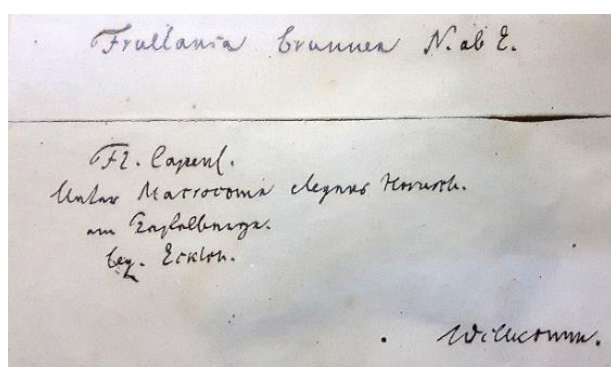 Frullania brunnea N. ab E.
Fl. Capens.
Unter Macrocoma elegans Hornsch.
am Tafelberge.
leg. Ecklon.
Willkomm.